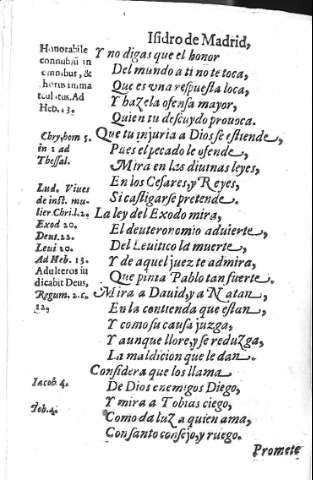 Isidro de Madrid,
Honorabile
connubiũ in
omnibus, &
thorus imma
culatus. Ad
Heb. 13.
Y no digas que el honor
Del mundo a ti no te toca,
Que es vna respuesta loca,
Y haze la ofensa mayor,
Quien tu descuydo prouoca.
Chry, hom 5.
in 2 ad
Thessal.
Que tu injuria a Dios se estiende,
Pues el pecado le ofende,
Mira en las diuinas leyes,
En los Cesares, y Reyes,
Si castigarse pretende.
Lud. Viues
de inst. mu-
lier Chri. l. 2,
Exod 20.
Deut. 22.
Leui 20.
Ad Heb. 13.
Adulteros iu
dicabit Deus,
Regum. 2. c.
12,
La ley del Exodo mira,
El deuteronomio aduierte,
Del Leuitico la muerte,
Y de aquel juez te admira,
Que pinta Pablo tan fuerte.
Mira a Dauid, y a Natan,
En la contienda que estan,
Y como su causa juzga,
Y aunque llore, y se reduzga,
La maldicion que le dan.
Considera que los llama
Iacob 4.
De Dios enemigos Diego,
Y mira a Tobias ciego,
Tob. 4.
Como da luz a quien ama,
Con santo consejo, y ruego.
Promete